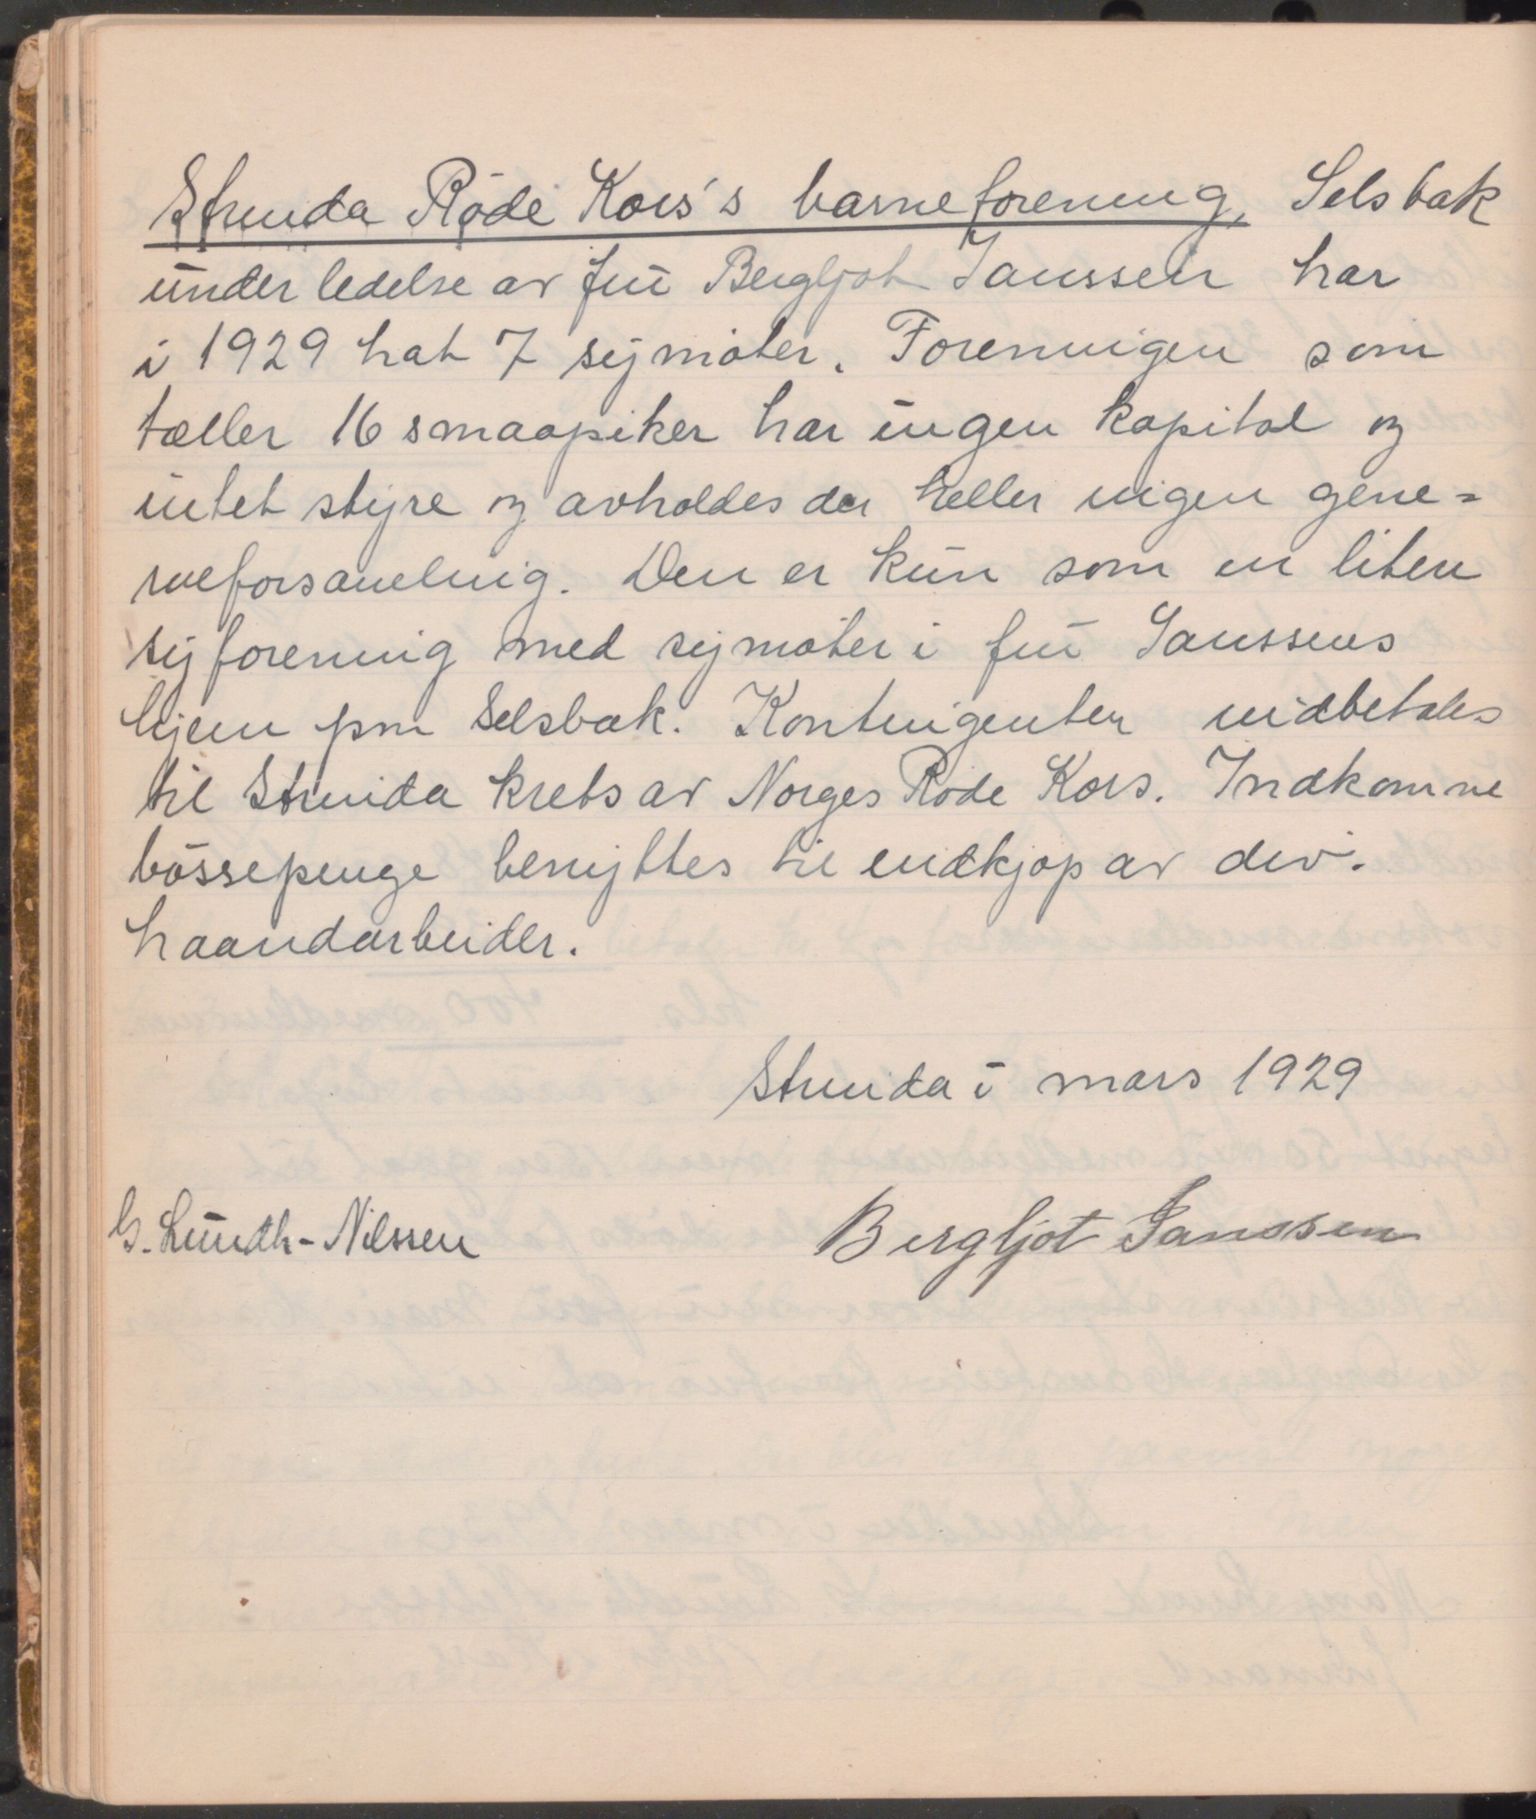 Strinda Røde Kors's barneforening, Selsbak
under ledelse av fru Bergljot Janssen har
i 1929 hat 7 symøter. Foreningen som
tæller 16 smaapiker har ingen kapital og
intet styre og avholdes der heller ingen gene-
ralforsamling. Den er kun som en liten
syforening med symøter i fru Janssens
hjem paa Selsbak. Kontingenten indbetales
til Strinda krets av Norges Røde Kors. Indkomne
bøssepenge benyttes til indkjøp av div.
haandarbeider.
Strinda i mars 1929
G. Lundh-Nilssen Bergljot Janssen